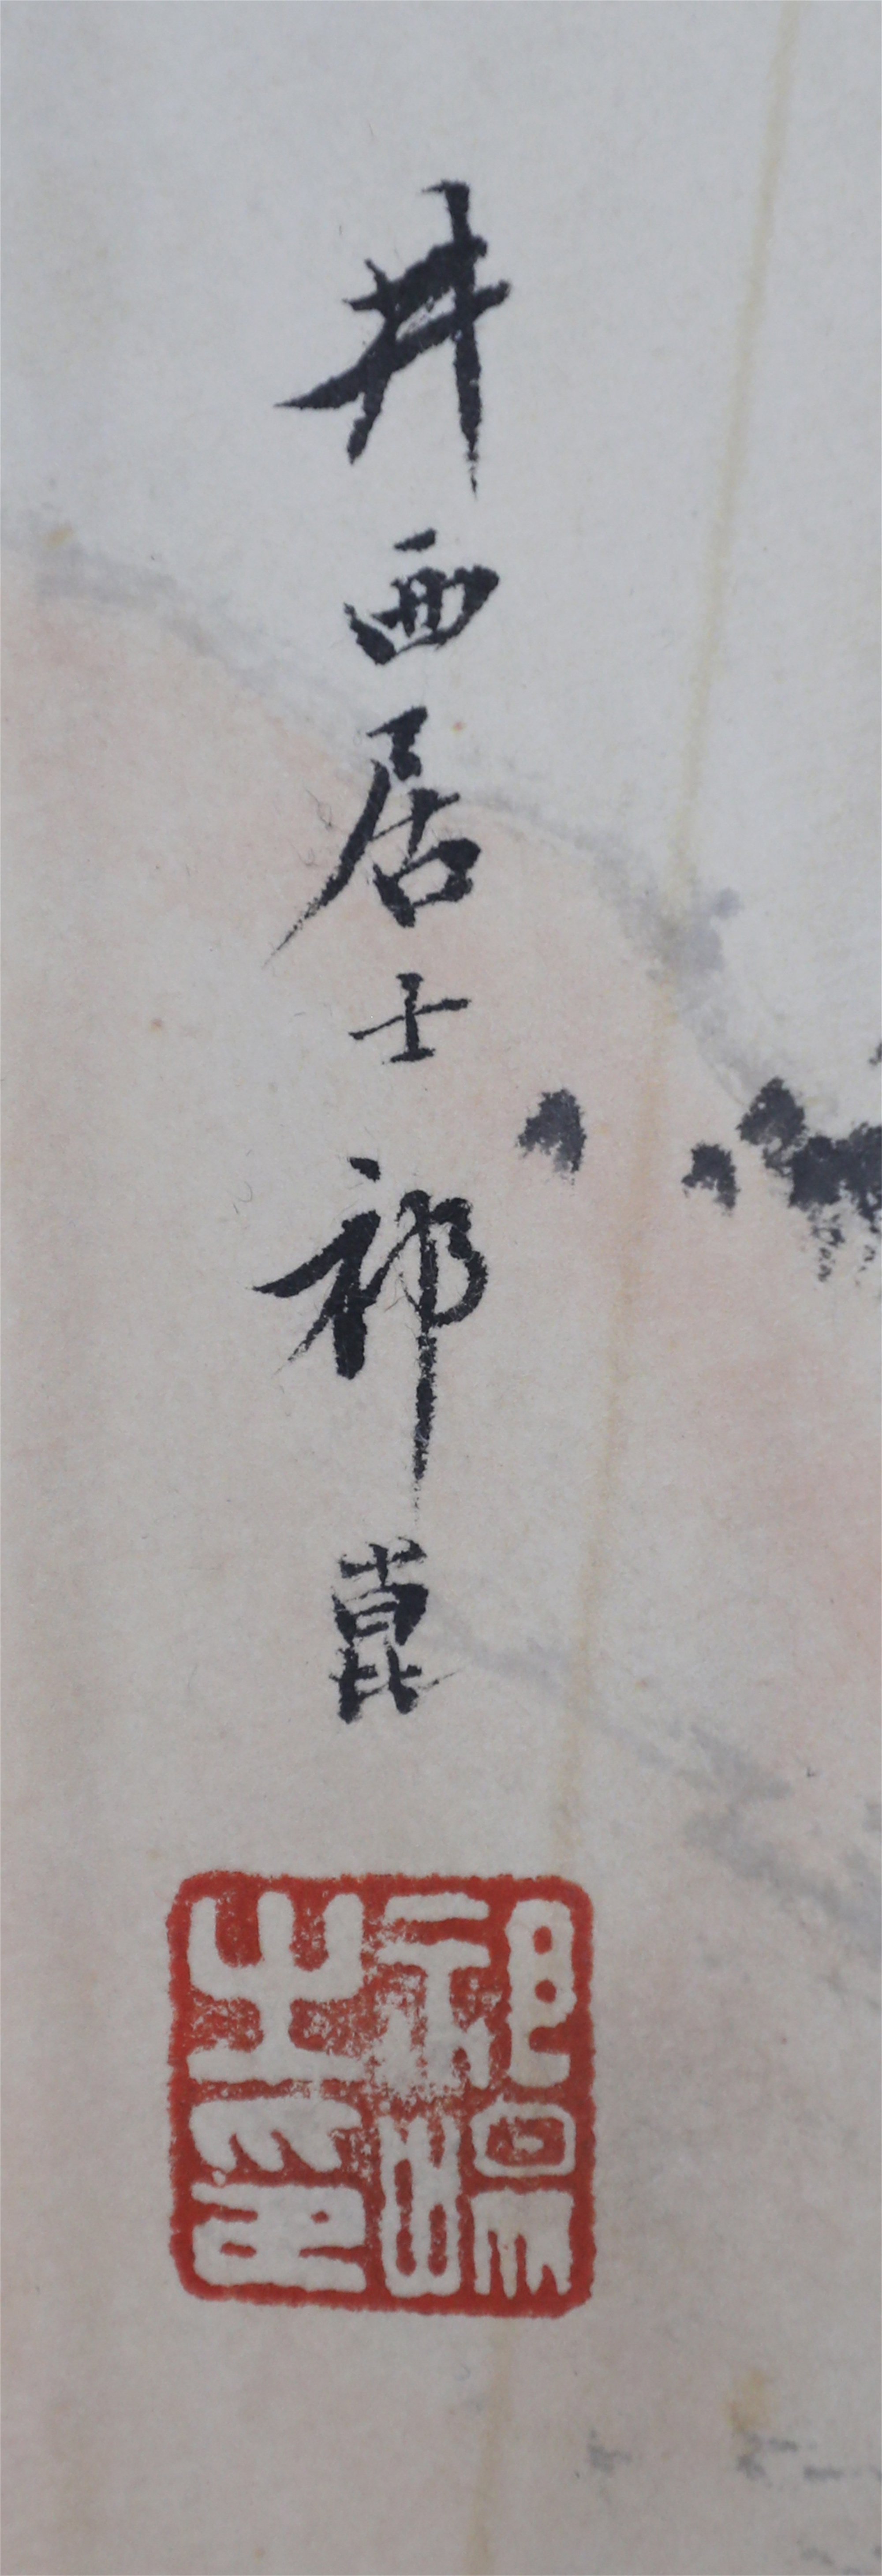 井西居士祁崑
祁之印